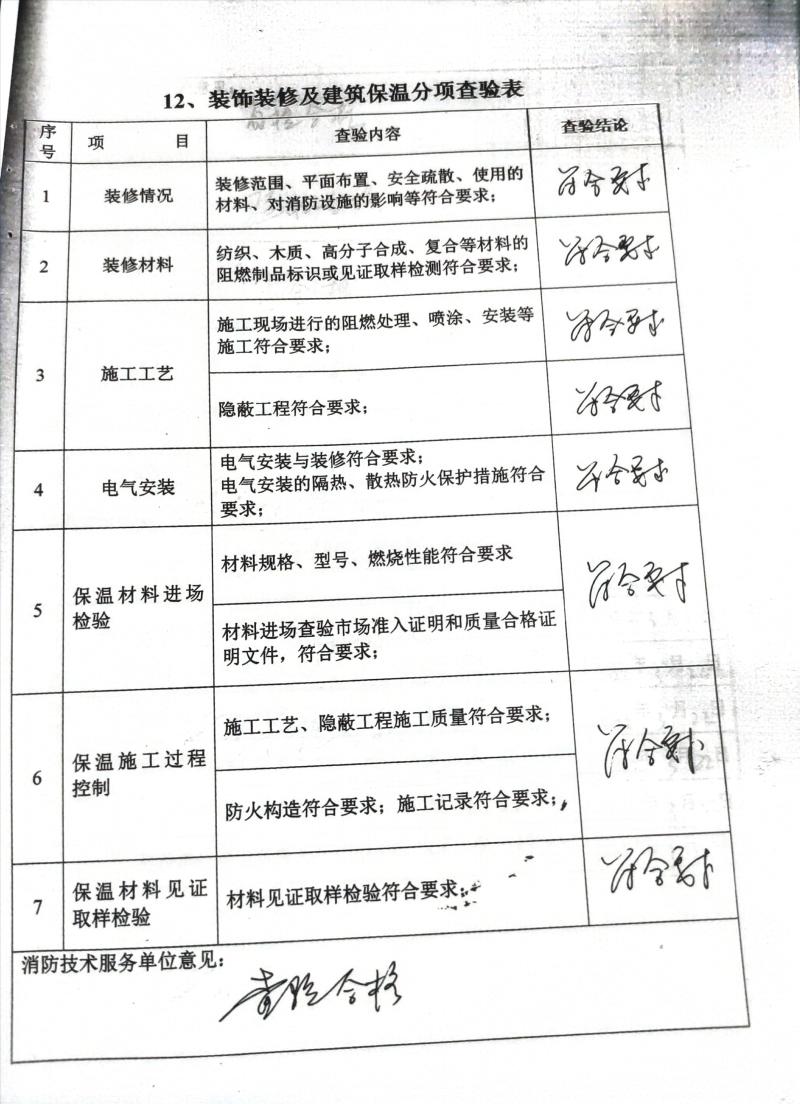 12、装饰装修及建筑保温分项查验表
序号 项 目 查验内容 查验结论
1 装修情况 装修范围、平面布置、安全疏散、使用的
材料、对消防设施的影响等符合要求； 符合要求
2 装修材料 纺织、木质、高分子合成、复合等材料的
阻燃制品标识或见证取样检测符合要求； 符合要求
3 施工工艺 施工现场进行的阻燃处理、喷涂、安装等
施工符合要求； 符合要求
隐蔽工程符合要求； 符合要求
4 电气安装 电气安装与装修符合要求；
电气安装的隔热、散热防火保护措施符合
要求； 符合要求
5 保温材料进场
检验
材料规格、型号、燃烧性能符合要求
材料进场查验市场准入证明和质量合格证
明文件，符合要求； 符合要求
6 保温施工过程
控制
施工工艺、隐蔽工程施工质量符合要求；
防火构造符合要求；施工记录符合要求； 符合要求
7 保温材料见证
取样检验
材料见证取样检验符合要求； 符合要求
消防技术服务单位意见：
查验合格